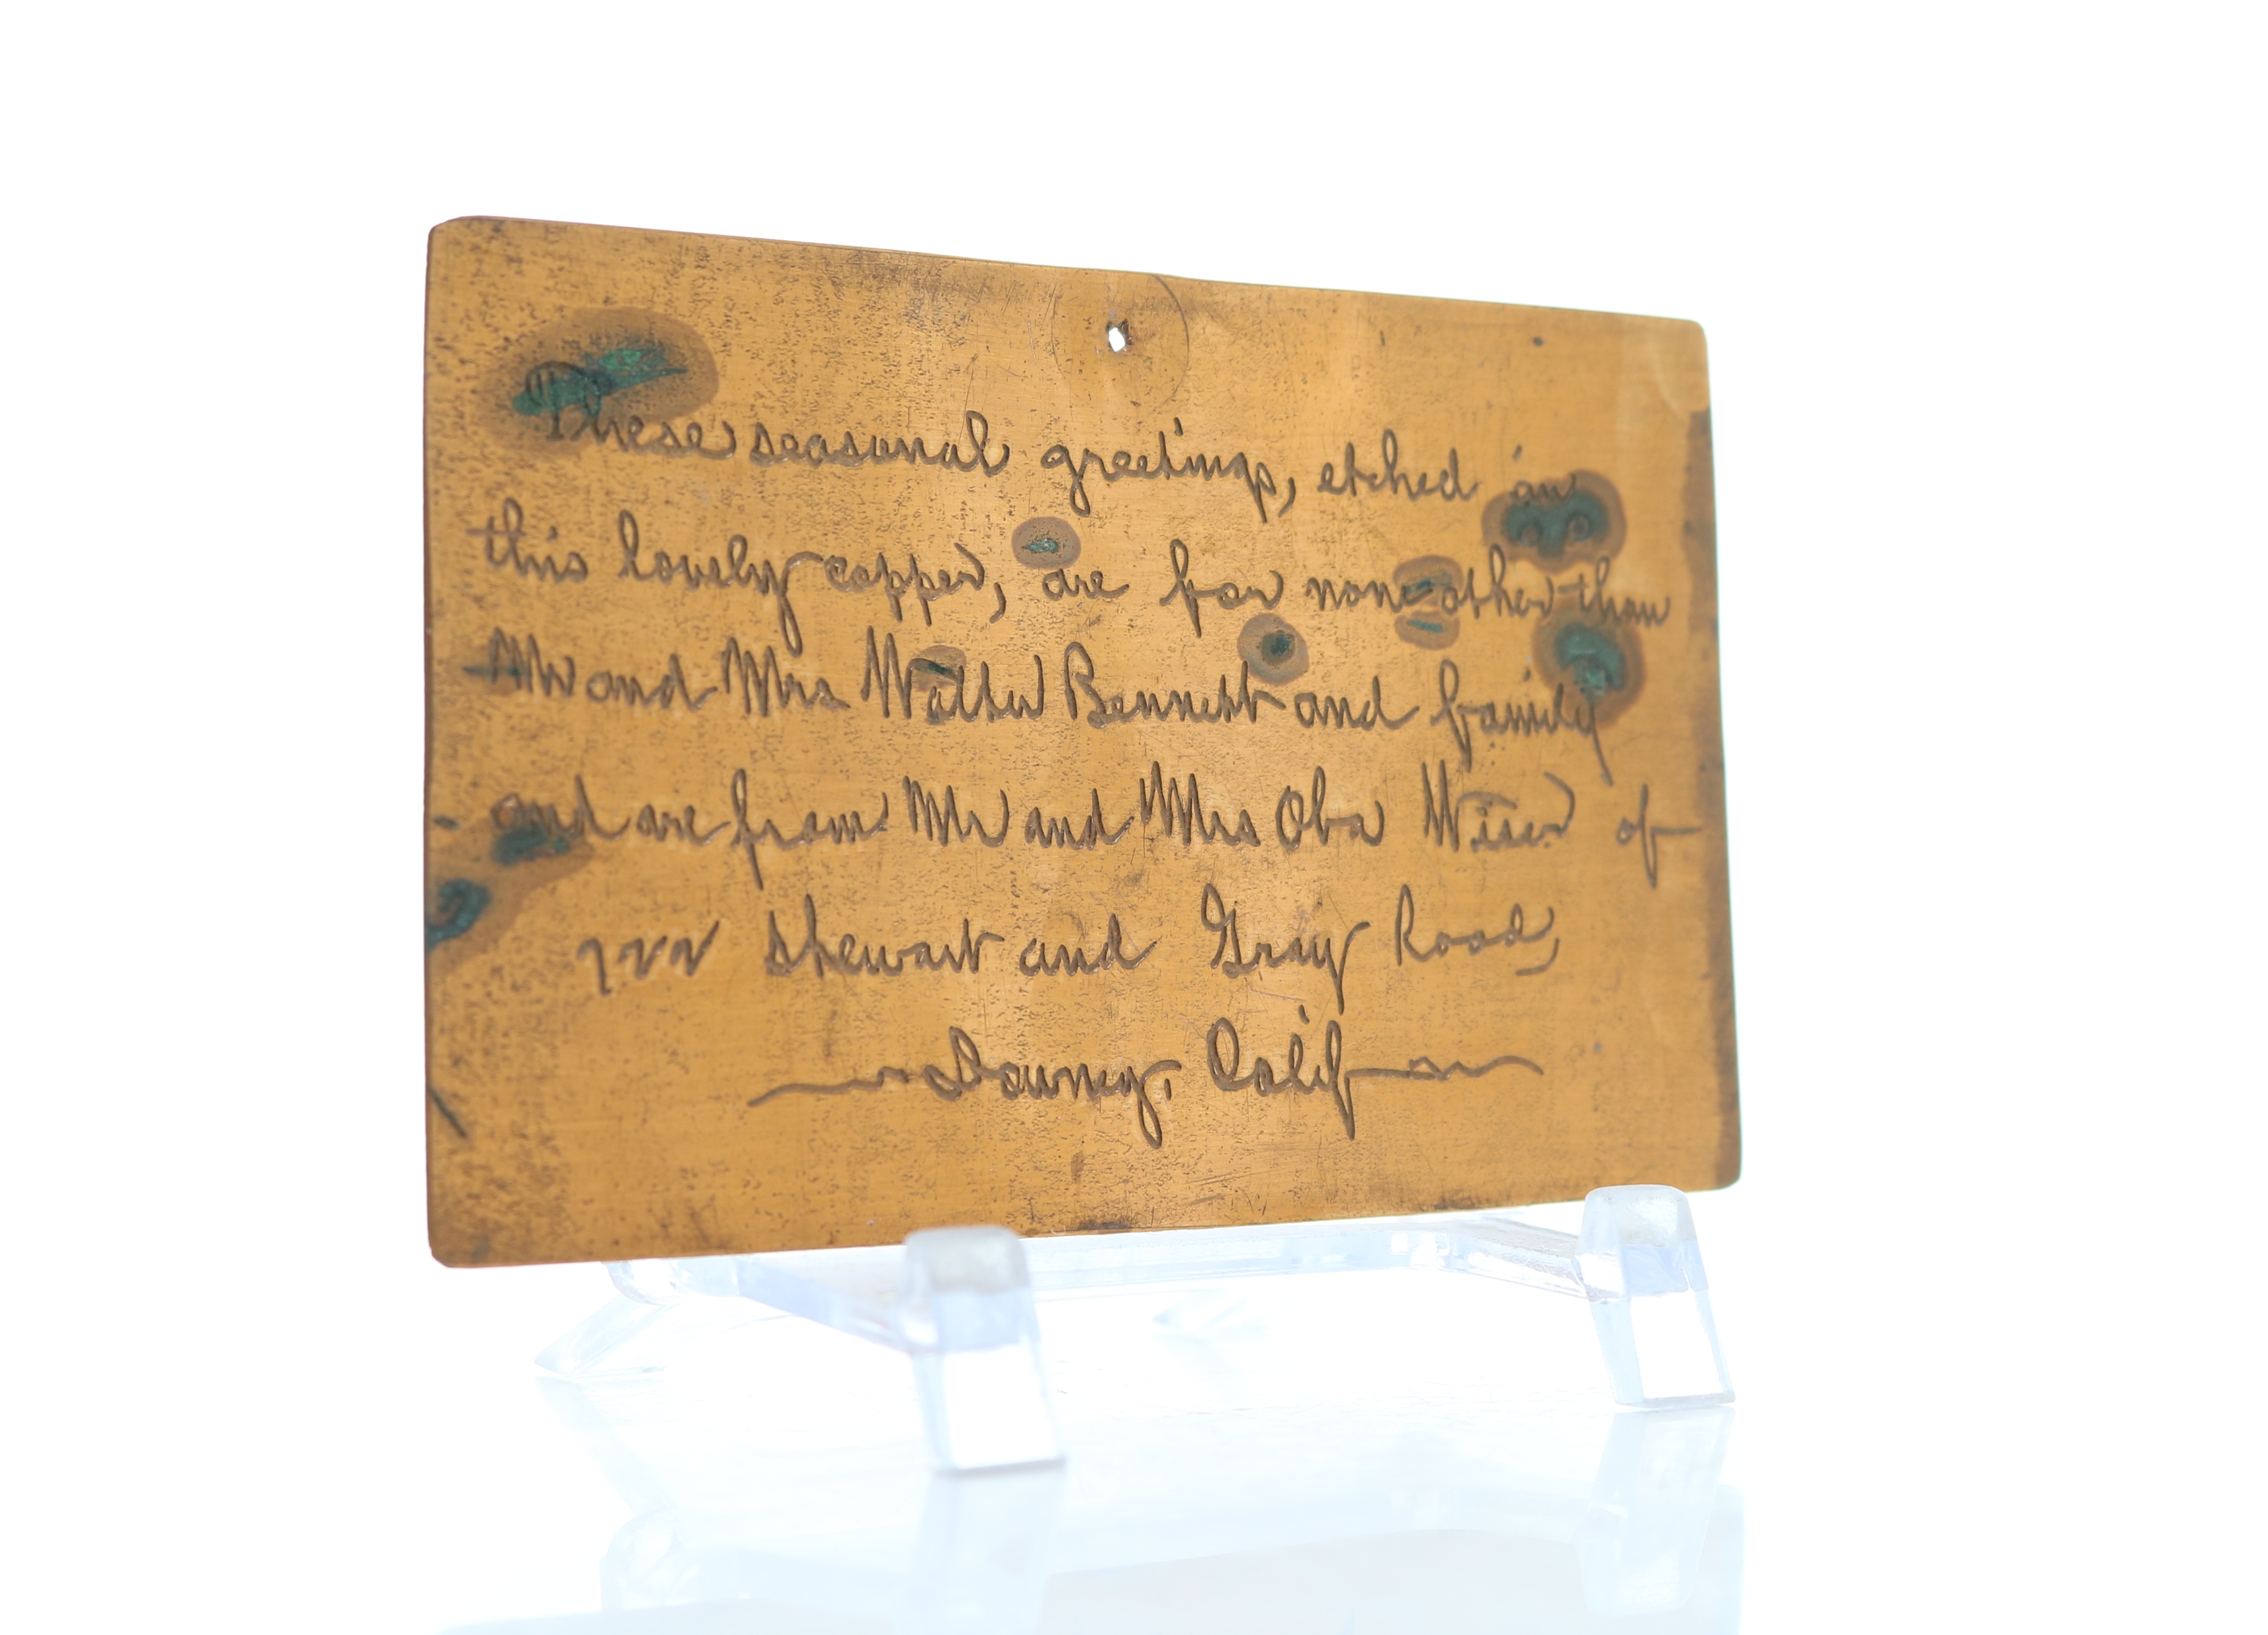 These seasonal greetings, etched in
this lovely copper, are for none other than
Mr and Mrs Walter Bennett and family
and are from Mr and Mrs Oba Wiser of
Stewart and Gray Road,
Downey, Calif